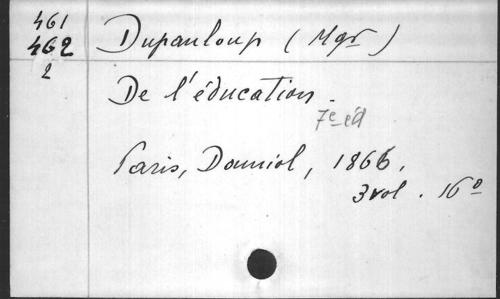 461
462
2
Dupanloup (Mgr)
De l'éducation.
7e éd
Paris, Douniol, 1866.
3 vol. 16°